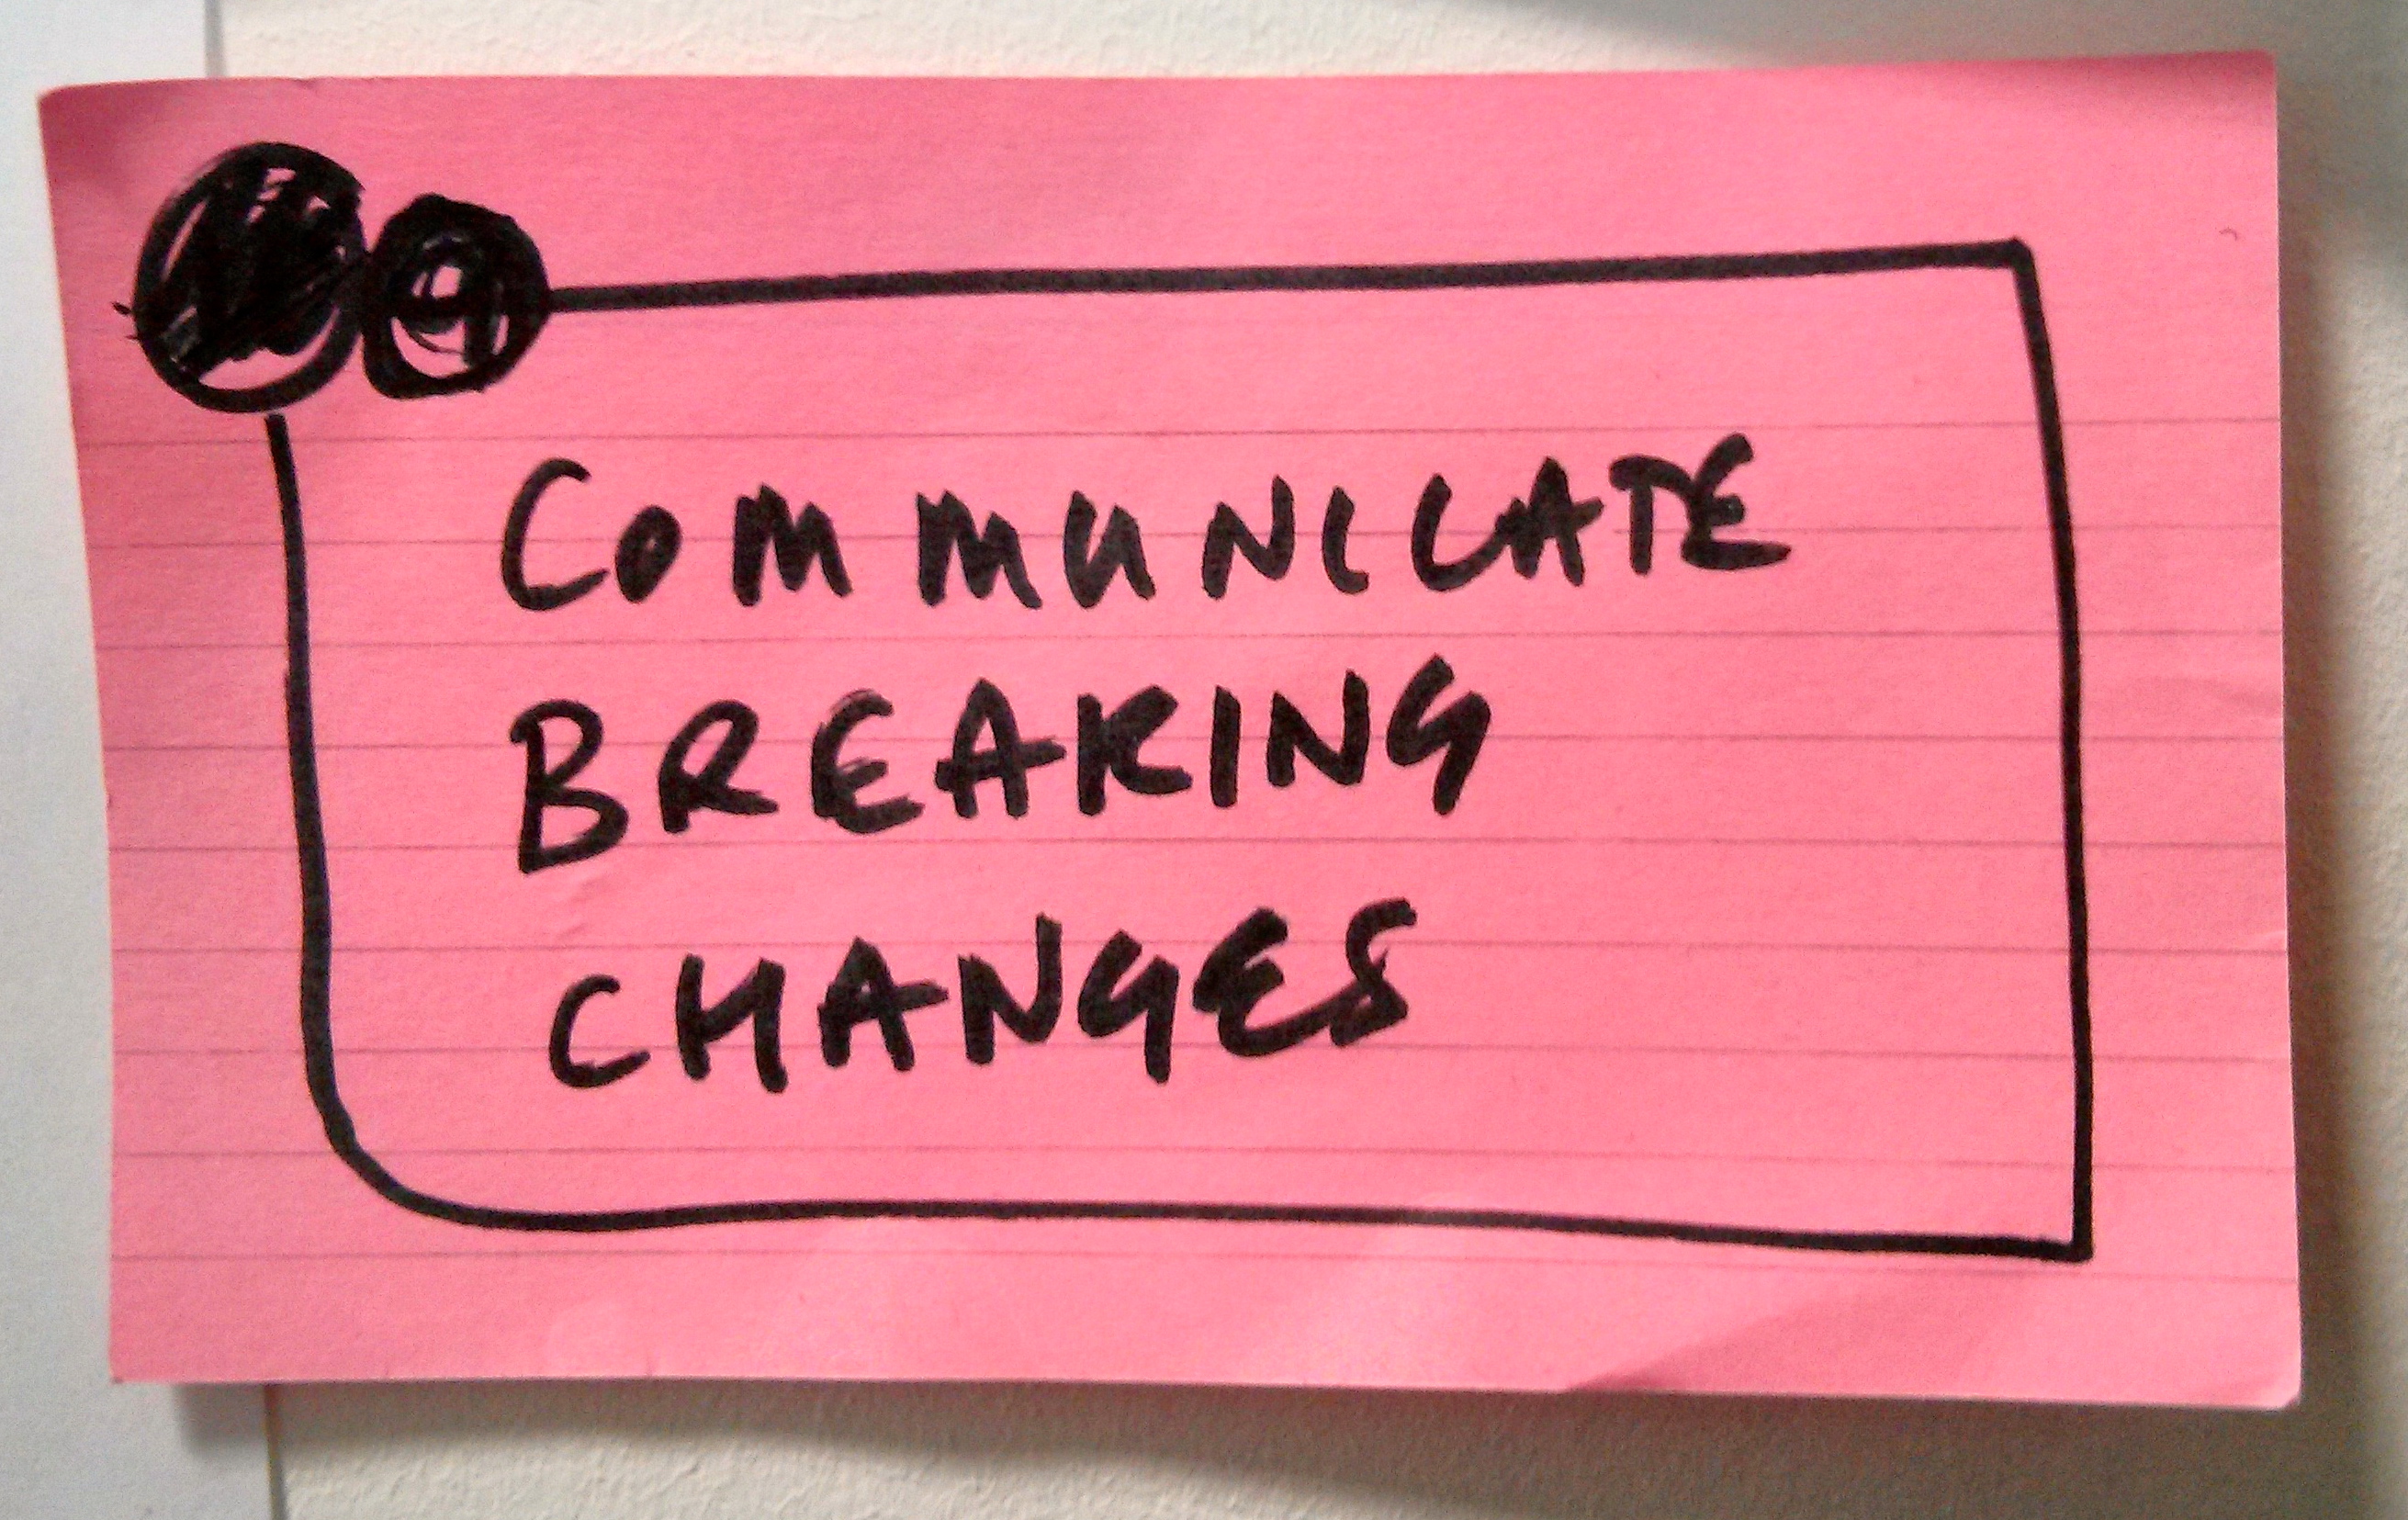 COMMUNICATE
BREAKING
CHANGES